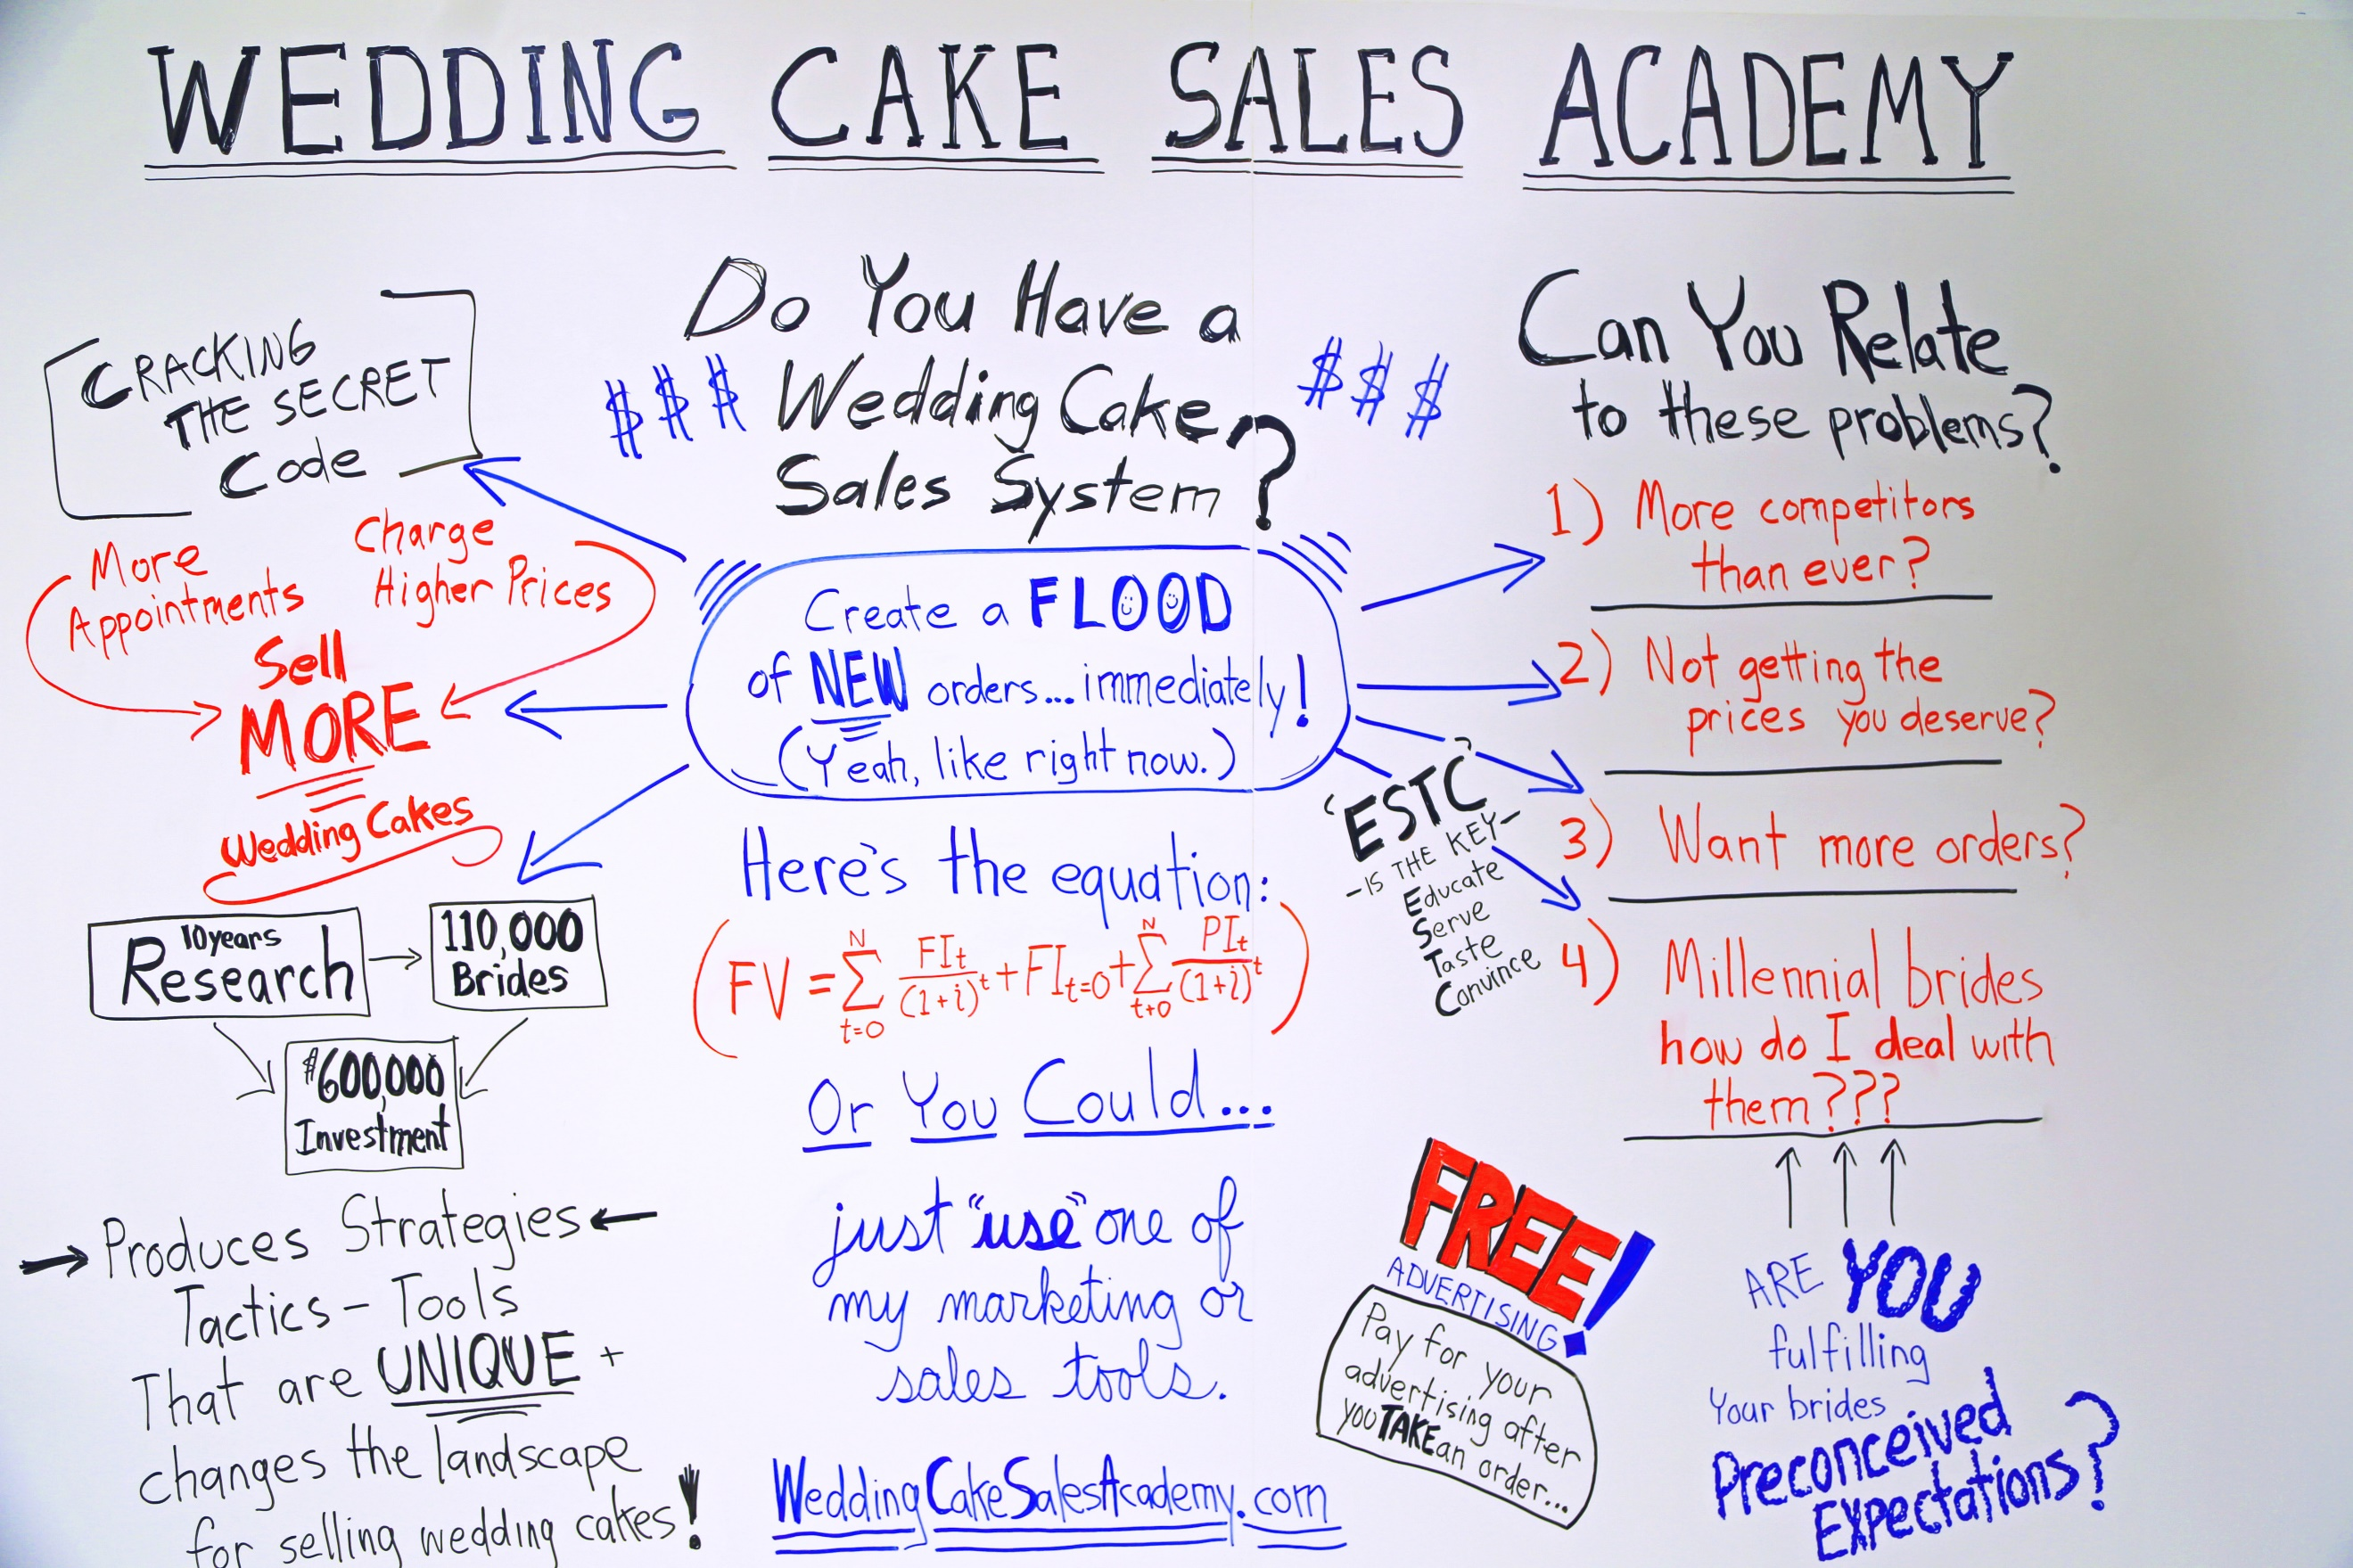 WEDDING CAKE SALES ACADEMY
CRACKING
THE SECRET
Code
More
Appointments
Charge
Higher Prices
Sell
MORE
Wedding Cakes
10 years
Research
110,000
Brides
$600,000
Investment
Produces Strategies
Tactics - Tools
That are UNIQUE +
changes the landscape
for selling wedding cakes!
Do You Have a
$$$ Wedding Cake $$$
Sales System?
Create a FLOOD
of NEW orders... immediately!
(Yeah, like right now.)
Here's the equation:
(FV = N∑t=0 FIt/(1+i)t + FIt=0 + N∑t+0 PIt/(1+i)t)
Or You Could...
just "use" one of
my marketing or
sales tools.
WeddingCakeSalesAcademy.com
'ESTC'
-IS THE KEY-
Educate
Serve
Taste
Convince
FREE!
ADVERTISING
Pay for your
advertising after
you TAKE an order...
Can You Relate
to these problems?
1) More competitors
than ever?
2) Not getting the
prices you deserve?
3) Want more orders?
4) Millennial brides
how do I deal with
them???
ARE YOU
fulfilling
Your brides
Preconceived
Expectations?